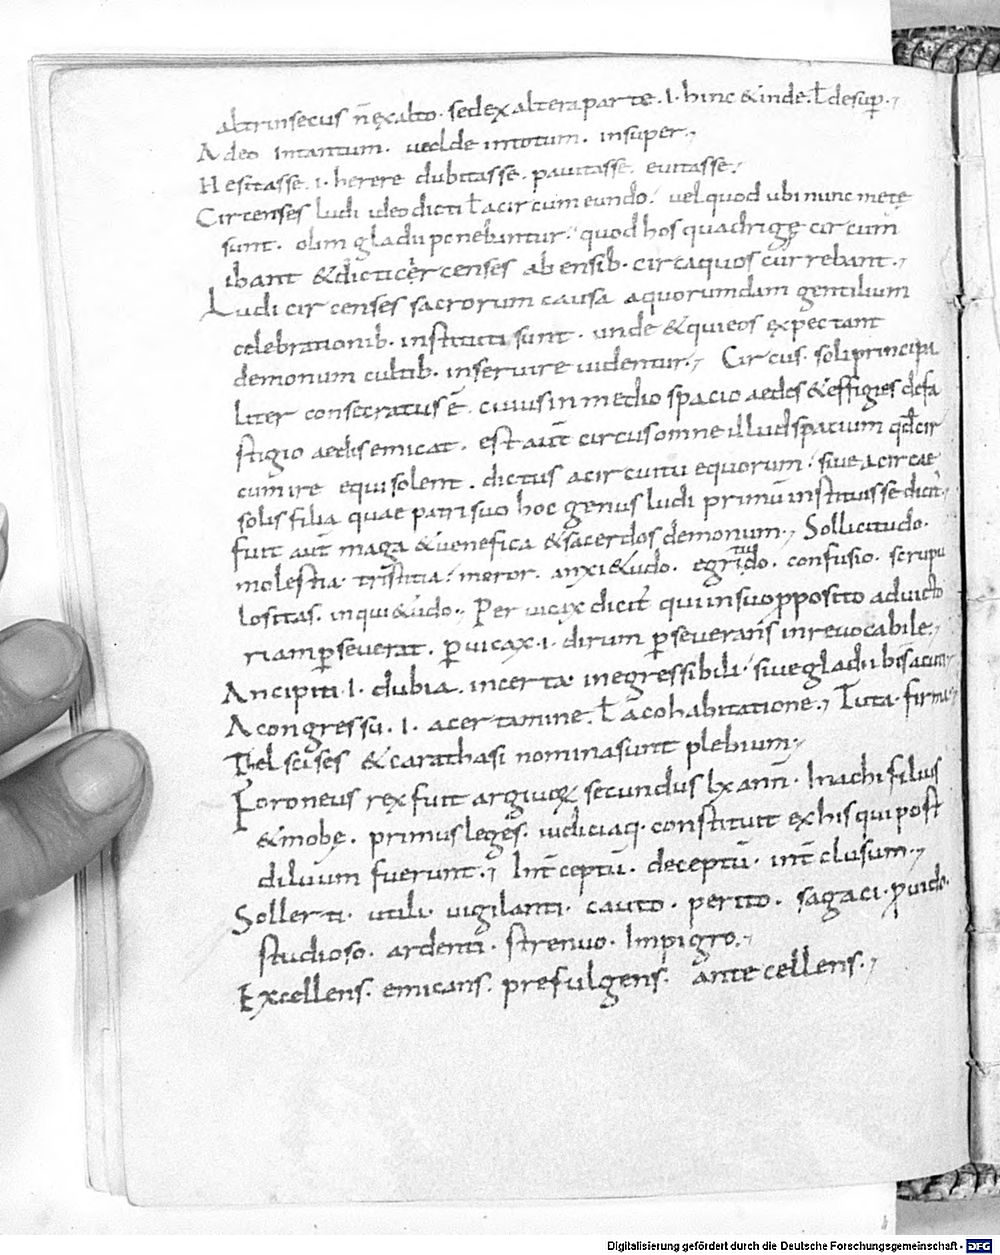 abtrinsecus n̄ ęx alto. sed ex altera parte .i. hinc & inde. ł desup̄.,
Adeo intantum. ualde intotum. insuper.,
Hesitasse .i. herere dubitasse. pauitasse. euitasse.,
Circenses ludi ideo dicti ł a circumeundo. uel quod ubi nunc metę
sunt. olim gladii ponebantur. quod hos quadrigę circum
ibant & dicti cęrcenses ab ensib. circa quos currebant.,
Ludi circenses sacrorum causa a quorumdam gentilium
celebrationib. instituti sunt. unde & qui eos ęxpectant
demonum cultib. inseruire uidentur., Circus. soli principa
liter consecratus ē. cuius in medio spacio aedes & effigies defa
stigio aedis emicat. est aūt circus omne illud spatium qđ cir
cumire equi solent. dictus a circuitu equorum. siue a circae
solis filia quae patri suo hoc genus ludi primū instituisse dicit.,
fuit aūt maga & uenefica & sacerdos demonum., Sollicitudo.
molestia. tristitia. meror. anxi&udo. egritudo. confusio. scrupu
lositas. inqui&udo., Peruicax dicit̄ qui in suo pposito ad uicto
riam p̄seuerat. p̄uicax .i. dirum p̄seuerans inreuocabile.,
Ancipiti .i. dubia. incerta. inegressibili. siue gladii bis acuti.,
A congressu .i. a certamine. ł a cohabitatione., Tuta. firma.,
Thelscises & carathasi nomina sunt plebium.,
Foroneus ręx fuit argiuoꝝ secundus lx ann̄. Inachi filius
& niobę. primus leges. iudiciaq. constituit ex his qui post
diluuium fuerunt., Int̄ceptū. deceptū. int̄clusum.,
Sollerti. utili. uigilanti. cauto. perito. sagaci. p̄uido.
studioso. ardenti. strenuo. Impigro.,
Excellens. emicans. prefulgens. antecellens.,
Digitalisierung gefördert durch die Deutsche Forschungsgemeinschaft - DFG